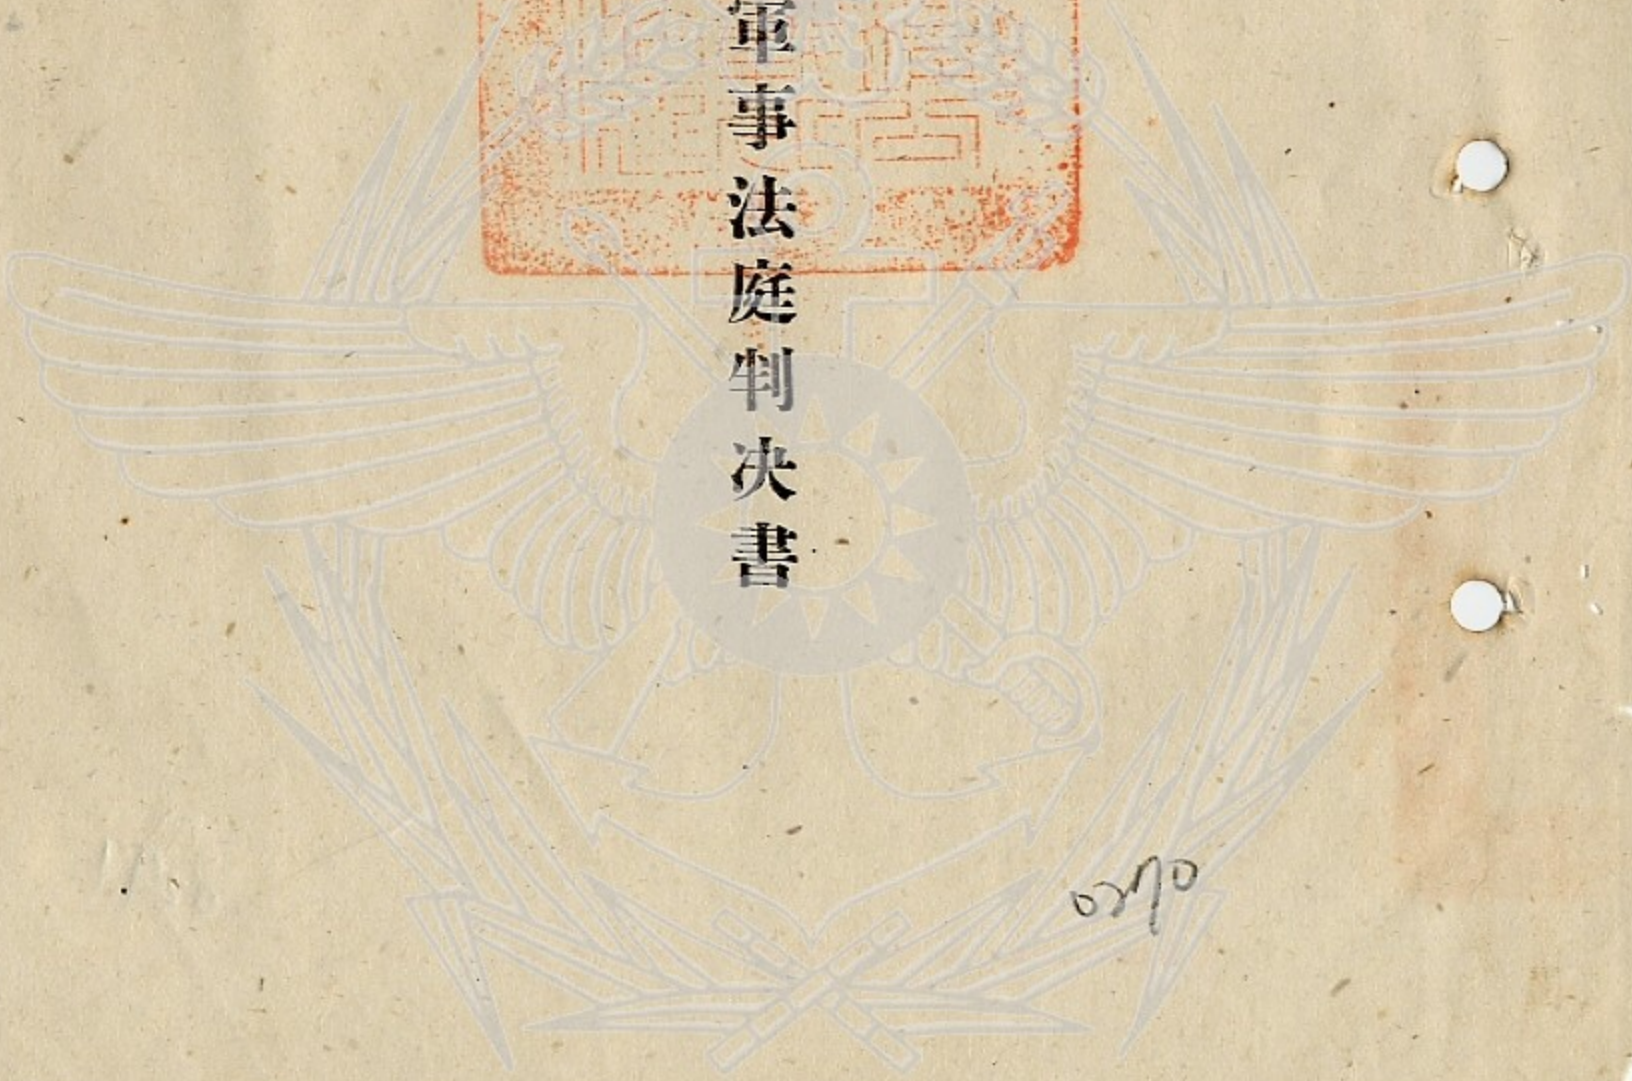 軍事法庭判决書
0270